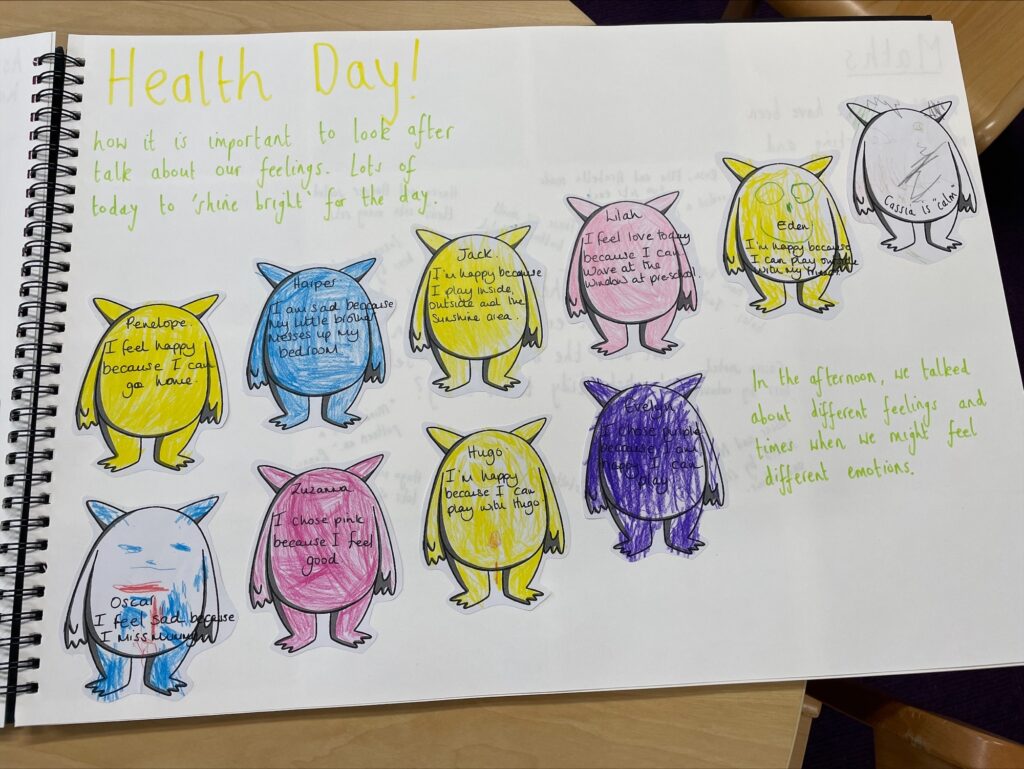 Health Day!
how it is important to look after
talk about our feelings. Lots of
today to 'shine bright' for the day.
Penelope.
I feel happy
because I can
go home.
Harper
I am sad because
my little brother
messes up my
bedroom
Jack.
I'm happy because
I play inside,
outside and the
sunshine area.
Lilah
I feel love today
because I can
wave at the
window at pre-school.
Eden
I'm happy because
I can play outside
with my friends
Cassia is "calm"
Oscar
I feel sad because
I miss mummy
Zuzanna
I chose pink
because I feel
good
Hugo.
I'm happy
because I can
play with Hugo
Evelyn
I chose purple
because I am
happy I can
play
In the afternoon, we talked
about different feelings and
times when we might feel
different emotions.